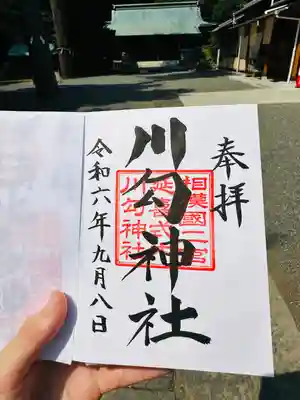 奉拝
川勾神社
相模國二宮
延喜式内
川勾神社
令和六年九月八日